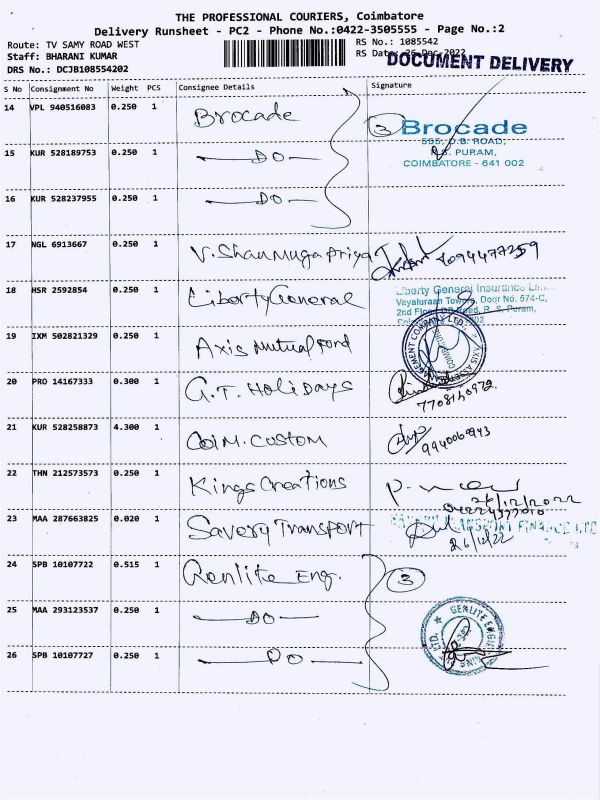 THE PROFESSIONAL COURIERS, Coimbatore
Delivery Runsheet - PC2 - Phone No.:0422-3505555 - Page No.:2
Route: TV SAMY ROAD WEST
RS No.: 1085542
Staff: BHARANI KUMAR
RS Date: 26-Dec-2022
DOCUMENT DELIVERY
DRS No.: DCJB108554202
S No Consignment No Weight PCS Consignee Details Signature
14 VPL 940516083 0.250 1 Brocade
3 Brocade
595, D.B. ROAD,
R.S. PURAM,
COIMBATORE - 641 002
15 KUR 528189753 0.250 1 DO
16 KUR 528237955 0.250 1 DO
17 NGL 6913667 0.250 1 V. Shanmuga Priya
18 HSR 2592854 0.250 1 Liberty General
Liberty General Insurance
Vayaluraan Towers, Door No. 574-C,
2nd Floor, DB Road, R. S. Puram,
19 IXM 502821329 0.250 1 Axis Mutual Fond
20 PRO 14167333 0.300 1 G.T. Holidays
7708140972
21 KUR 528258873 4.300 1 Coim. Custom
9940060943
22 THN 212573573 0.250 1 Kings Creations
26/12/2022
23 MAA 287663825 0.020 1 Savery Transport
TRANSPORT FINANCE LTD
26/12/22
24 SPB 10107722 0.515 1 Genlite Eng.
3
25 MAA 293123537 0.250 1 DO
GENLITE ENGI
26 SPB 10107727 0.250 1 DO